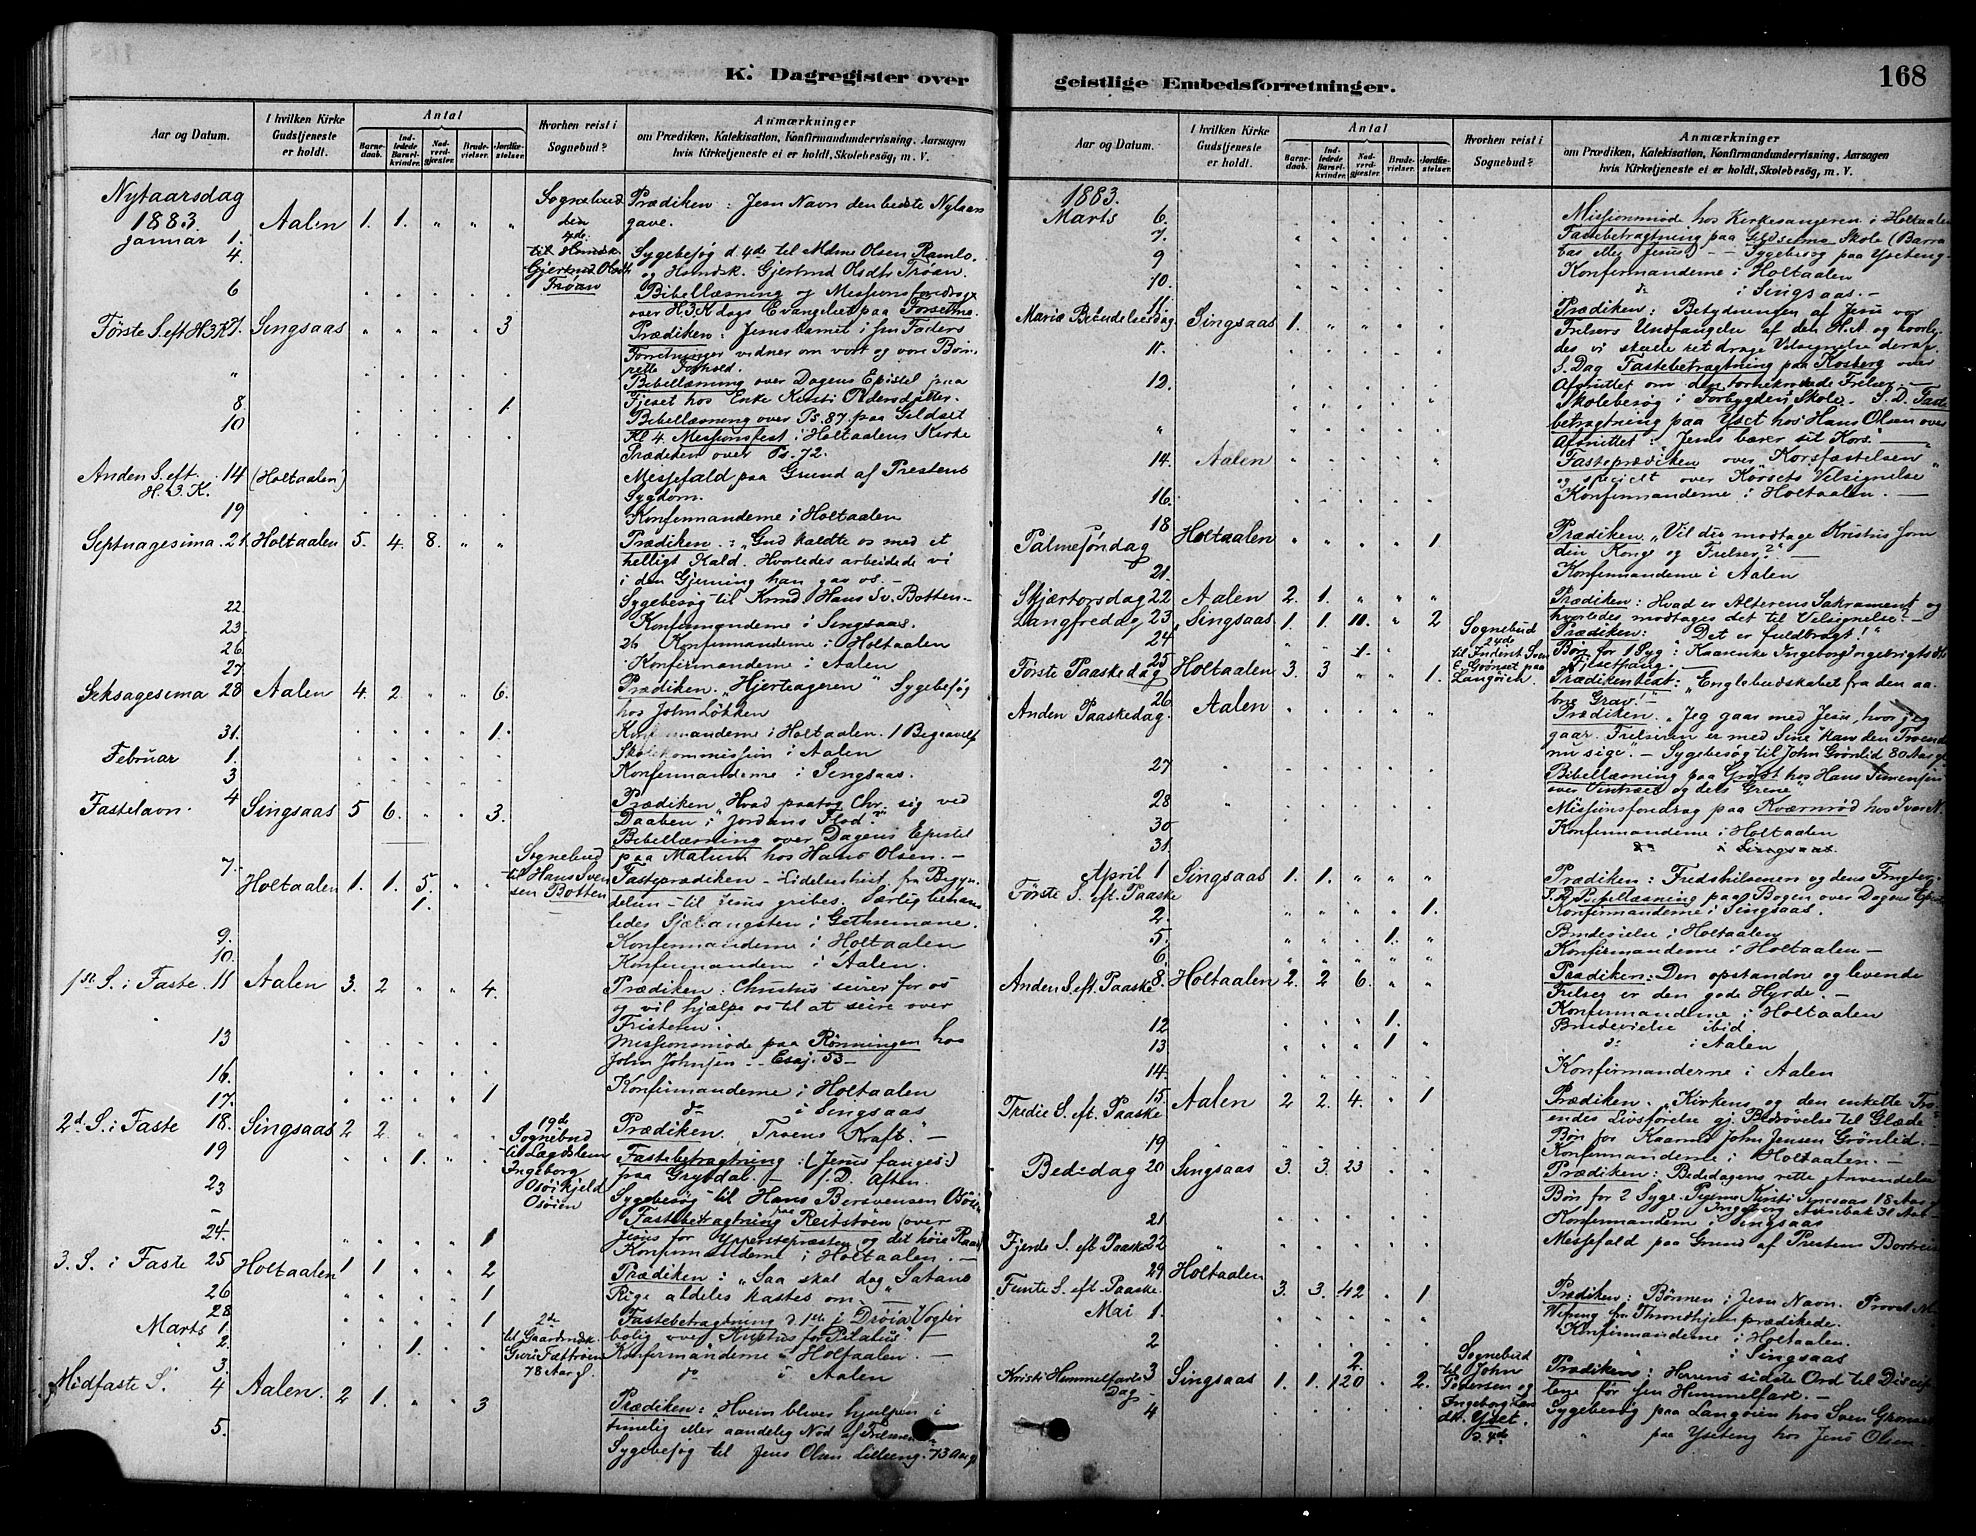 K. Dagregister over geistlige Embedsforretninger.
168
Aar og Datum.
I hvilken Kirke Gudstjeneste er holdt.
Antal
Barnedaab.
Indledede Barselkvinder.
Nadverdgjester.
Brudevielser.
Jordfæstelser.
Hvorhen reist i Sognebud?
Anmærkninger
om Prædiken, Katekisation, Konfirmandundervisning, Aarsagen
hvis Kirketjeneste ei er holdt, Skolebesøg, m. V.
Nytaarsdag
1883. Aalen 1. 1. Sognebud Prædiken: Jesu Navn den bedste Nytaars
Januar 1. den 4de gave.
4. til Hmdsk. Sygebesøg d. 4de til Mdme Olsen Ramlo
Gjertrud Olsdtr Trøan og Hdmsk. Gjertrud Olsdtr Trøan.
6 Bibellæsning og Missionsforedrag
over H3K dags Evangeliet paa
Første S. eft H3K 7. Singsaas 3 Prædiken: Jesusbarnet i sin Faders
Forretninger vidner om vort og vore Børns
rette Forhold.
Bibellæsning over Dagens Epistel paa
8 1. Fjeset hos Enke Kirsti Pedersdatter.
10 Bibellæsning over Ps. 87. paa Gildset
Kl 4. Missionsfest i Holtaalens Kirke
Prædiken over Ps. 72.
Anden S. eft. H.3.K. 14 (Holtaalen) Messefald paa Grund af Prestens
Sygdom.
19 Konfirmanderne i Holtaalen
Septuagesima 21. Holtaalen 5. 4. 8. Prædiken: "Gud kaldte os med et
helligt Kald. Hvorledes arbeidede vi
i den Gjerning han gav os. –
Sygebesøg til Hans Sv. Botten –
22. Konfirmanderne i Singsaas.
23. 26 Konfirmanderne i Holtaalen
26.
27 Konfirmanderne i Aalen
Seksagesima 28 Aalen 4. 2. 6. Prædiken. "Hjerteageren" Sygebesøg
hos John Løkken
31. 1. Konfirmanderne i Holtaalen. 1 Begravelse
Februar 1. Skolekommission i Aalen
3 Konfirmanderne i Singsaas.
Fastelavn. 4 Singsaas 5 6. 3. Prædiken "Hvad paatog Chr. sig ved
Daaben i Jordans Flod"
Bibellæsning over Dagens Epistel
Sognebud paa hos Hans Olsen. –
7. Holtaalen 1. 1. 5. til Hans Svensen Botten Fasteprædiken – Lidelseshist. fra Begyndelsen
1. – til Jesus gribes. Særlig behandledes
Sjæleangsten i Gethsemane.
9. Konfirmanderne i Holtaalen
10. Konfirmanderne i Aalen.
1ste S. i Faste 11 Aalen 3. 2 4. Prædiken: Christus seirer for os
og vil hjælpe os til at seire over
Fristeren.
13 Missionsmøde paa Rønningen hos
John Johnsen – Esaj. 53 –
16. Konfirmanderne i Holtaalen
17. 1 do i Singsaas
2d. S. i Faste 18. Singsaas 2 2. 19d Prædiken. "Troens Kraft." –
19 1. Sognebud Fastebetragtning: (Jesus fanges:)
paa Grytdal – s. D. Aften.
23 Sygebesøg til Hans
Osøien Fastebetragtning paa over
24. 1 Jesus for Ypperstepræsten og det høie Raad
Konfirmanderne i Holtaalen. –
3. S. i Faste 25 Holtaalen 1 1 2 Prædiken: "Saa skal dog Satans
26 1 Rige aldeles kastes om.
28
Marts 1. 1 2de Fastebetragtning d 1ste i Drøia Vogter
2. 1. til Gaardmdk. bolig over "Kristus for Pilatus" –
3. 78 Aar gl. Konfirmanderne i Holtaalen. –
do i Aalen
Midfaste S. 4 Aalen. 2 1. 3 Prædiken: "Hvem bliver hjulpen i
5. timelig eller aandelig Nød af
Sygebesøg til Jens Olsen 73 Aar g.
Aar og Datum.
I hvilken Kirke Gudstjeneste er holdt.
Antal
Barnedaab.
Indledede Barselkvinder.
Nadverdgjester.
Brudevielser.
Jordfæstelser.
Hvorhen reist i Sognebud?
Anmærkninger
om Prædiken, Katekisation, Konfirmandundervisning, Aarsagen
hvis Kirketjeneste ei er holdt, Skolebesøg, m. V.
1883.
Marts 6. Missionsmøde hos Kirkesangeren i Holtaalen
7. Fastebetragtning paa Skole (Barrabas
9 eller Jesus) – Sygebesøg paa Yseteng
10. Konfirmanderne i Holtaalen
do i Singsaas. –
Mariæ Bebudelsesdag 11. Singsaas 1. Prædiken: Betydningen af Jesu vor
Frelsers Undfangelse af den H. A. og hvorledes
vi skulle ret drage Velsignelse deraf.
11. S. Dag Fastebetragtning paa Kosberg over
12. Afsnittet om den tornekronede Frelser –
Skolebesøg i Forbygdens Skole. S. D. Fastebetragtning
paa Yset hos Hans Olsen over
Afsnittet: Jesus bærer sit Kors. –
14. Aalen Fasteprædiken over Korsfæstelsen
og specielt over Korsets Velsignelse
16. Konfirmanderne i Holtaalen. –
Palmesøndag 18 Holtaalen 1 Prædiken "Vil du modtage Kristus som
din Konge og Frelser?"
21. Konfirmanderne i Aalen
Skjærtorsdag 22 Aalen 2. 1. Prædiken: Hvad er Alterens Sakrament og
hvorledes modtages det til Velsignelse? –
Langfredag 23 Singsaas 1. 1. 11. 2 Sognebud Prædiken: "Det er fuldbragt!"
24 1. 24de Bøn for 1 Syg:
Første Paaskedag 25 Holtaalen 3. 3 1. Prædikentext: "Englebudskabet fra den aabne
Grav!" –
Anden Paaskedag. 26 Aalen Prædiken. "Jeg gaar med Jesu, hvor jeg
gaar. Frelseren er med Sine kan den Troende
nu sige". – Sygebesøg til John Grønlid 80 Aar gl.
27 Bibellæsning paa hos Hans Simensen
over Vintræet og dets Grene"
28 Missionsforedrag paa Kværnrød hos Iver N.
30 Konfirmanderne i Holtaalen
31. do i Singsaas.
April 1 Singsaas 1. 1. Prædiken: Fredshilsenen og dens Frugter.
Første S. eft. Paaske S. D. Bibellæsning paa Bogen over Dagens Epistel
2. 1. Konfirmanderne i Singsaas.
5. 1. Brudevielse i Holtaalen
6. Konfirmanderne i Holtaalen –
Anden S. eft. Paaske 8. Holtaalen 2. 2 6. Prædiken: Den opstandne og levende
Frelser er den gode Hyrde. –
Konfirmanderne i Holtaalen
12 1. Brudevielse ibid.
13 1 do i Aalen
14. Konfirmanderne i Aalen
Tredie S. eft. Paaske 15. Aalen 2 2. 4. 1 Prædiken. Kirkens og den enkelte Troendes
Livsførelse gj. Bedrøvelse til Glæde
Bøn for John Jensen Grønlid. –
19 Konfirmanderne i Holtaalen. –
Bededag 20 Singsaas 3. 3. 23 Prædiken: Bededagens rette Anvendelse
Bøn for 2 Syge. Pigerne Kirsti Singsaas 18 Aar
Ingeborg 31 Aar –
21. Konfirmanderne i Singsaas
Fjerde S. eft Paaske 22 Messefald paa Grund af Prestens Bortreise
Femte S. eft. Paaske 29 Holtaalen 3. 3. 42 1 Prædiken: Bønnen i Jesu Navn. Provst
Mai 1. fra Throndhjem prædikede.
Konfirmanderne i Holtaalen.
2 " i Singsaas
Kristi Himmelfarts Dag 3 Singsaas 1. 1. 120 2. Sognebud til John Pedersen og Prædiken: Herrens sidste Ord til Disciplene
før sin Himmelfart. –
4 Sygebesøg paa Langøien hos Sven
" paa Yseteng hos Jens Olsen.